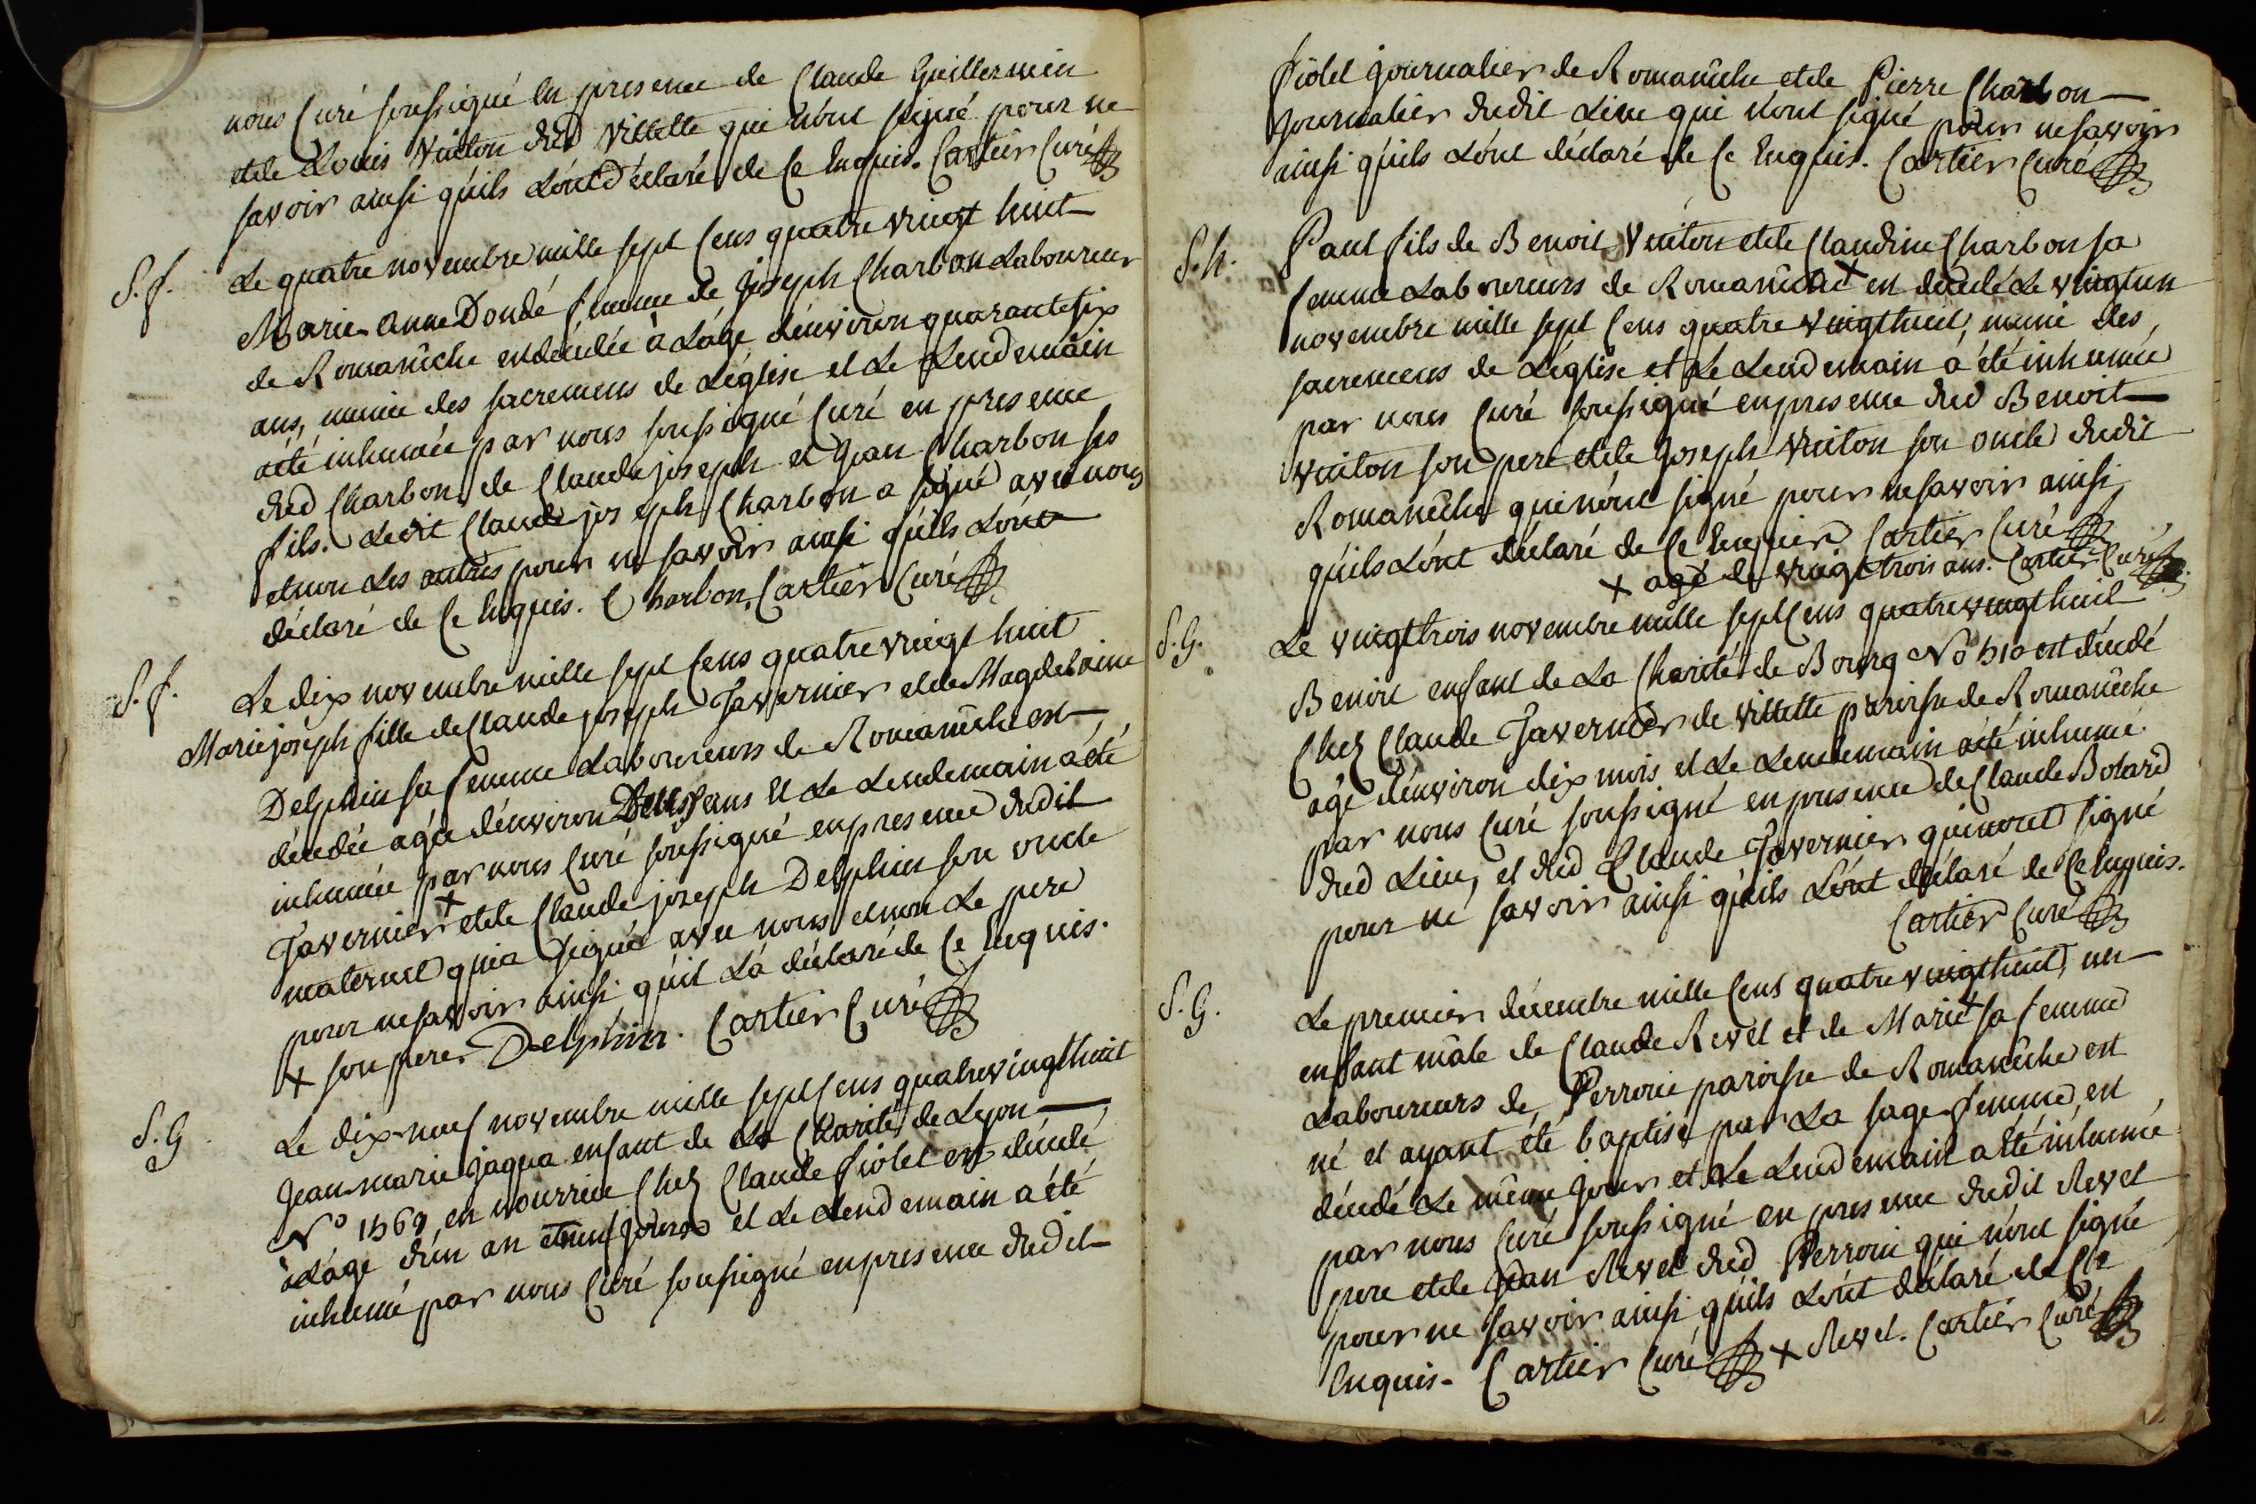 nous Curé soussigné en presence de Claude Guillermin
et de Louis Vuiton dud Villette qui n'ont signé pour ne
savoir ainsi qu'ils L'ont déclaré de Ce Enquis. Cartier Curé
S. f.
Le quatre novembre mille sept Cens quatre vingt huit
Marie-Anne Dondé femme de Joseph Charbon Laboureur
de Romanêche en décédée à L'age d'environ quarante six
ans, munie des sacremens de L'église et Le Lendemain
a été inhumée par nous soussigné Curé en presence
dud Charbon, de Claude joseph et Jean Charbon ses
fils. Ledit Claude joseph Charbon a signé avec nous
et non Les autres pour ne savoir ainsi qu'ils L'ont
déclaré de Ce Enquis. Charbon, Cartier Curé
S. f.
Le dix novembre mille sept Cens quatre vingt huit
Marie joseph fille de Claude joseph Tavernier et de Magdelaine
Delphin sa femme Laboureurs de Romanêche est
décédée agée d'environ Deux ans Et Le Lendemain a été
inhumée par nous Curé soussigné en presence dudit
Tavernier + et de Claude joseph Delphin son oncle
maternel qui a signé avec nous et non Le pere
pour ne savoir ainsi qu'il L'a déclaré de Ce Enquis.
+ son pere Delphin. Cartier Curé
S. G
Le dix-neuf novembre mille sept Cens quatre vingt huit
Jean-marie jaqua enfant de La Charité de Lyon
N° 1569 en nourrice Chez Claude Fiolet est décédé
à L'age d'un an et neuf jours et Le Lendemain a été
inhumé par nous Curé soussigné en presence dudit
Fiolet journalier de Romanêche et de Pierre Charbon
Journalier dudit Lieu qui n'ont signé pour ne savoir
ainsi qu'ils L'ont déclaré de Ce Enquis. Cartier Curé
S. h.
Paul fils de Benoit Vuiton et de Claudine Charbon sa
femme Laboureurs de Romanêche + en décédé Le vingt un
novembre mille sept Cens quatre vingt huit, muni des
sacremens de L'église et Le Lendemain a été inhumée
par nous Curé soussigné en presence dud Benoit
Vuiton son pere et de Joseph Vuiton son oncle dudit
Romanêche qui n'ont signé pour ne savoir ainsi
qu'ils L'ont déclaré de Ce Enquis Cartier Curé
+ agé de vingt trois ans. Cartier Curé
S. G.
Le vingt trois novembre mille sept Cens quatre vingt huit
Benoit enfant de La Charité de Bourg N° 510 est décédé
Chez Claude Tavernier de Villette paroisse de Romanêche
agé d'environ dix mois et Le Lendemain a été inhumé
par nous Curé soussigné en presence de Claude Bolard
dud Lieu, et dud Claude Tavernier qui n'ont signé
pour ne savoir ainsi qu'ils L'ont déclaré de Ce Enquis.
Cartier Curé
S. G.
Le premier décembre mille Cens quatre vingt huit, un
enfant mâle de Claude Revel et de Marie + sa femme
Laboureurs de Perroue paroisse de Romanêche est
né et ayant été baptisé par La sage-femme, en
décédé Le même jour et Le Lendemain a été inhumé
par nous Curé soussigné en presence dudit Revel
pere et de Jean Revel dud Perroue qui n'ont signé
pour ne savoir ainsi qu'ils L'ont déclaré de Ce
Enquis. Cartier Curé + Revel. Cartier Curé